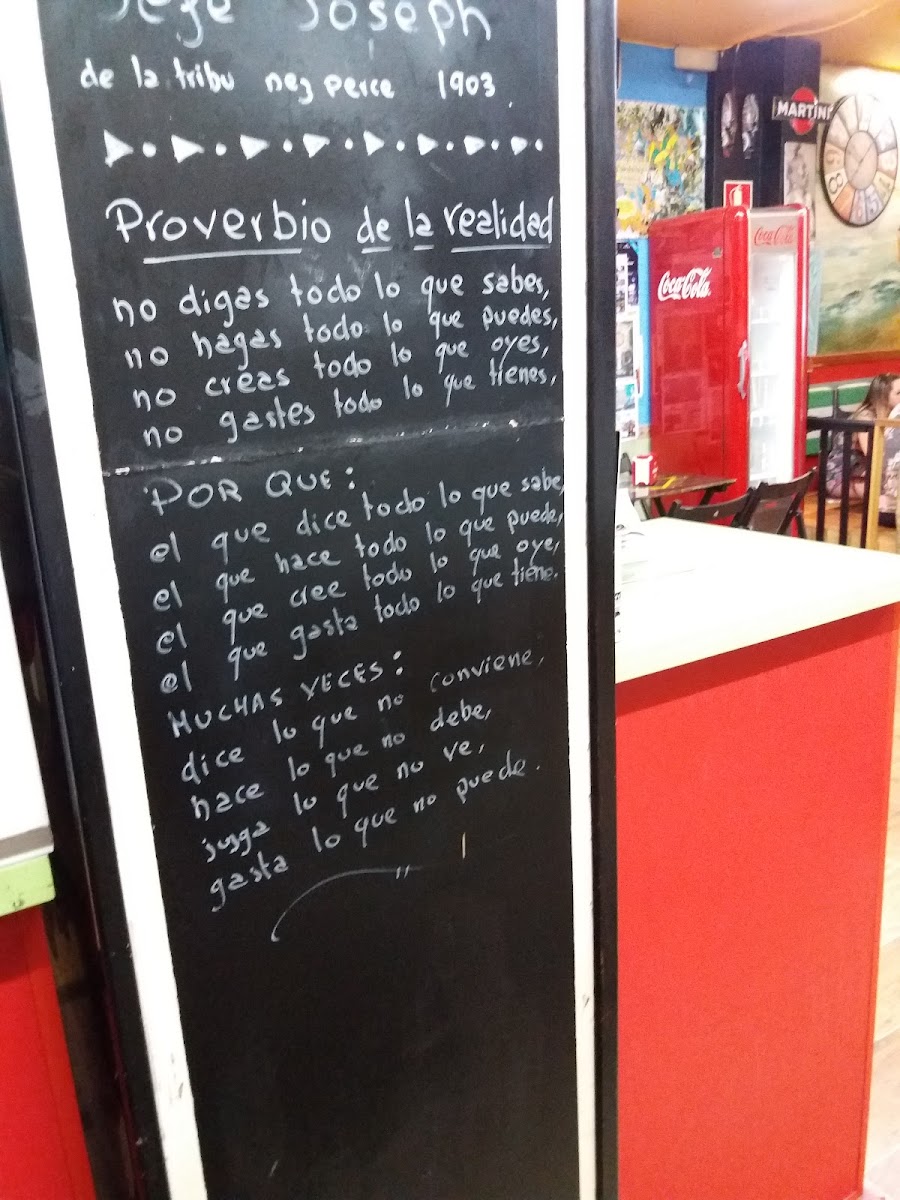 Jefe Joseph
de la tribu nez perce 1903.
Proverbio de la realidad
no digas todo lo que sabes,
no hagas todo lo que puedes,
no creas todo lo que oyes,
no gastes todo lo que tienes,
POR QUE:
el que dice todo lo que sabe,
el que hace todo lo que puede,
el que cree todo lo que oye,
el que gasta todo lo que tiene.
MUCHAS VECES:
dice lo que no conviene,
hace lo que no debe,
juzga lo que no ve,
gasta lo que no puede.
MARTINI
Coca-Cola
Coca-Cola